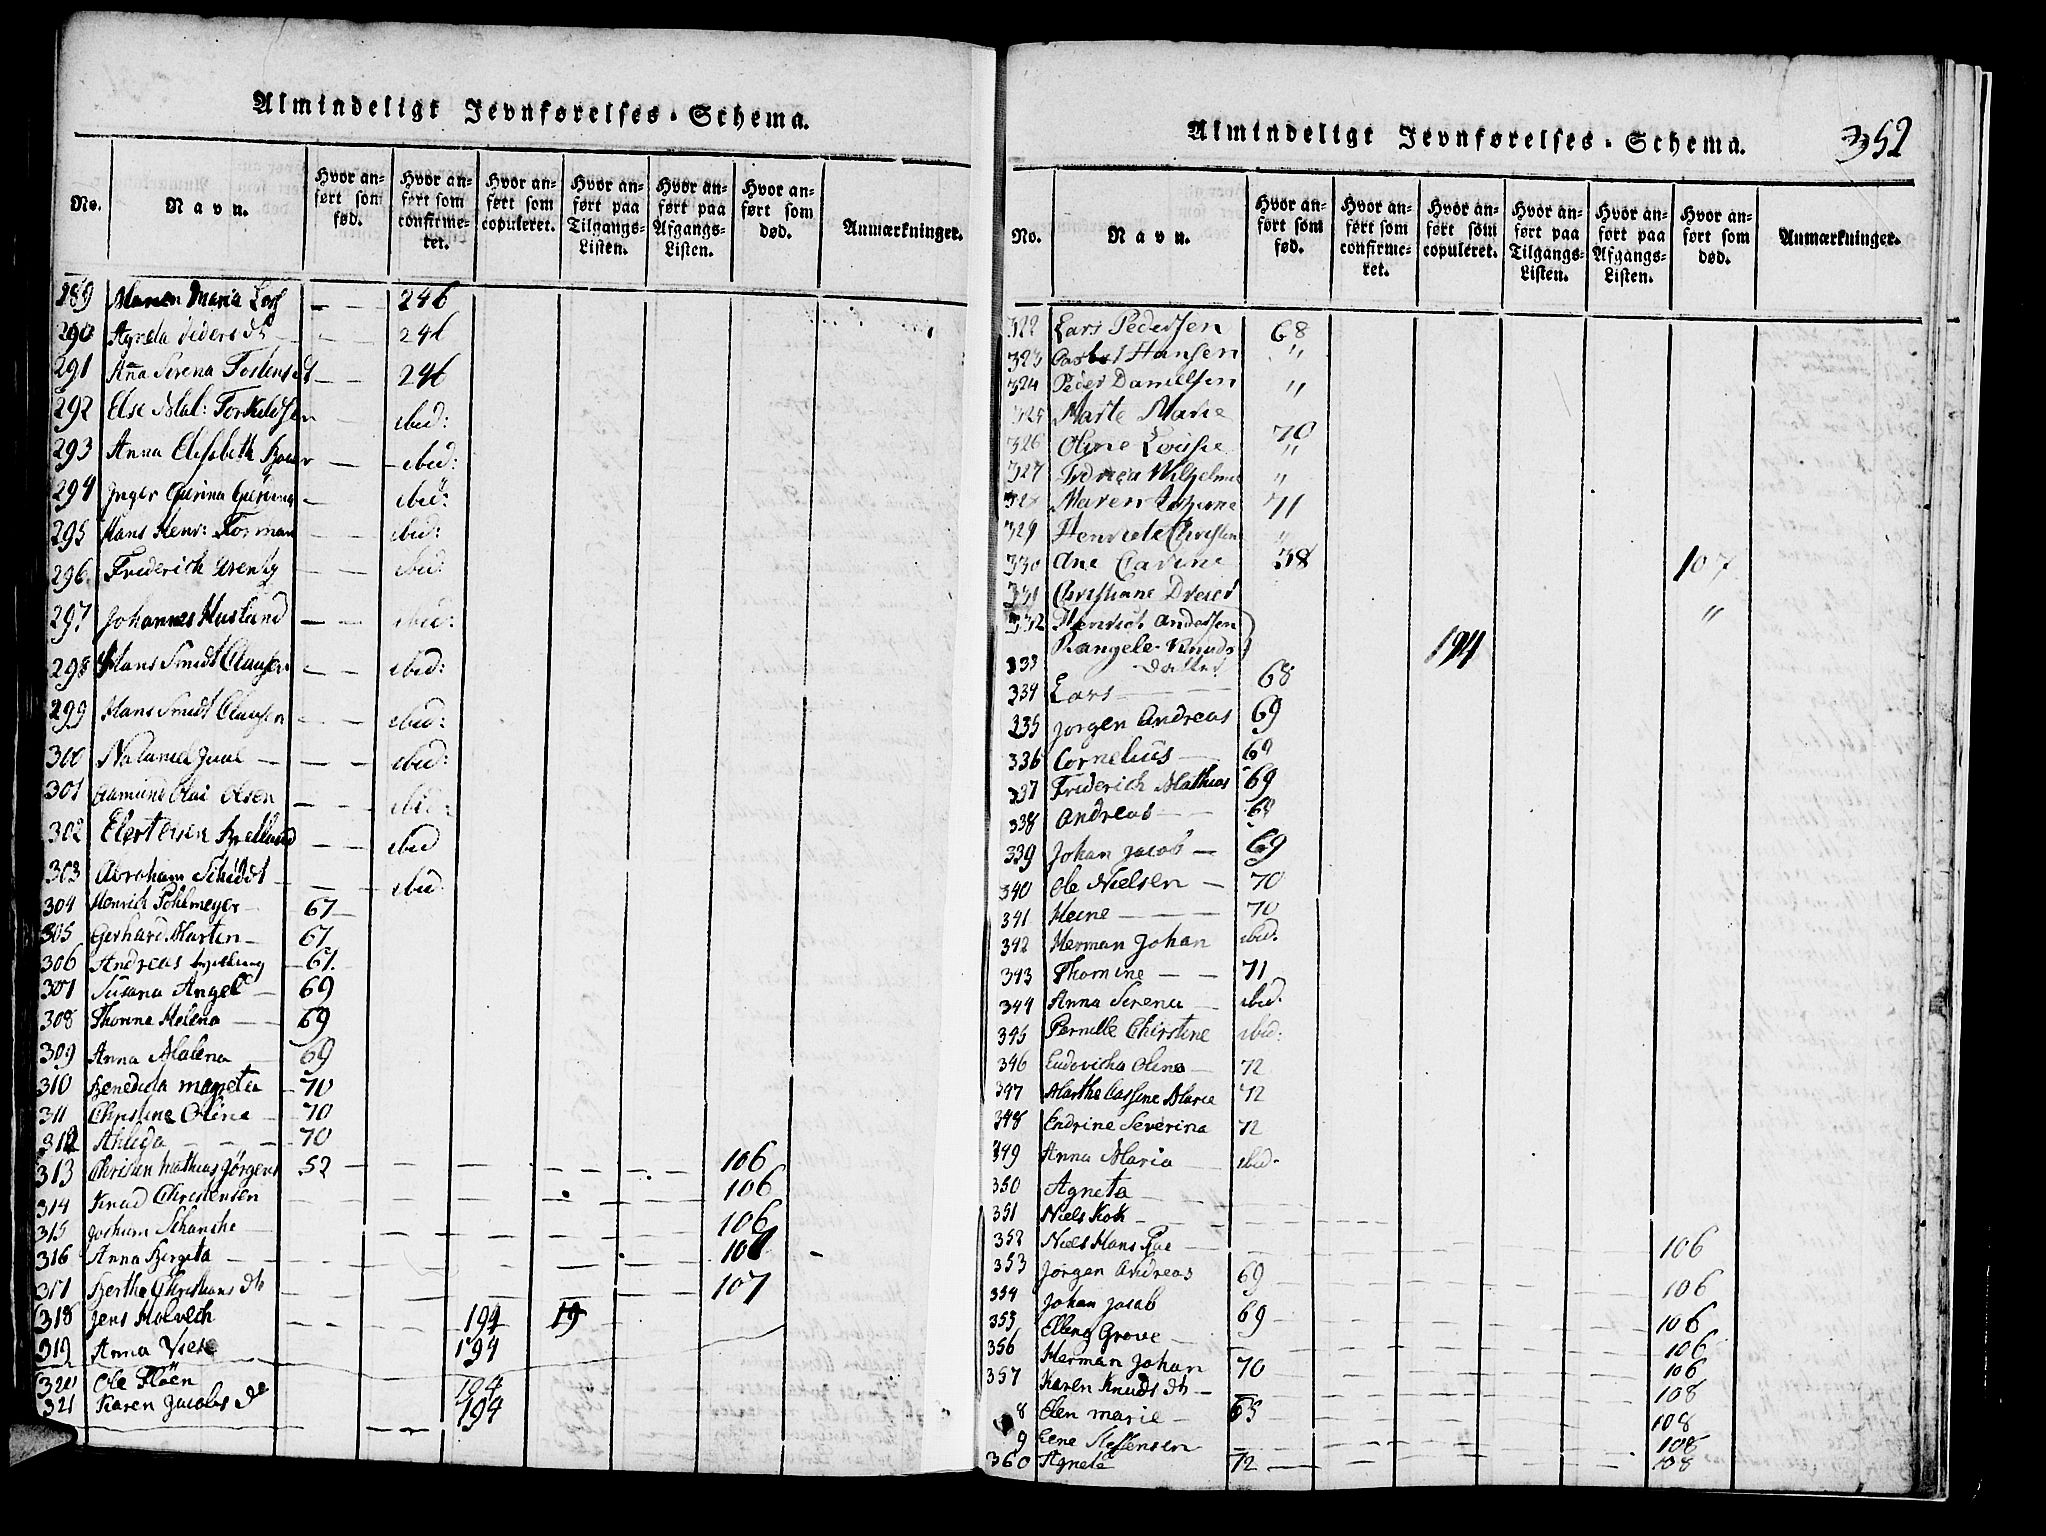 Almindeligt Jevnførelses-Schema.
No. Navn. Hvor anført som fød. Hvor anført som confirmeret. Hvor anført som copuleret. Hvor anført paa Tilgangs-Listen. Hvor anført paa Afgangs-Listen. Hvor anført som død. Anmærkninger.
289 Maren Maria — — 246
290 Agneta Peders dt — — 246
291 Aña Serena dt — — 246
292 Else Mal: Torkildsen ibid:
293 Anna Elisabeth — — ibid:
294 Inger Gurina — ibid:
295 Hans Henr: Forman — — ibid:
296 Friderich — — ibid:
297 Johannes Husland — — ibid:
298 Hans Smidt Clausen — — ibid:
299 Hans Smidt Clausen — — ibid:
300 Nataniel Juul — — — ibid:
301 Olai Olsen — — ibid:
302 — — ibid
303 Abraham Schiödt — — ibid:
304 Henrich Pohlmeyer — 67 —
305 Gerhard Marten — 67
306 Andreas — 67.
307 Susana Angel — 69
308 Thomne Helena — 69
309 Anna Malena — 69
310 Benedicta Magreta — 70
311 Christine Oline — 70
312 — — — 70
313 Christen Mathias Jörgens 52 — — — — — 106
314 Knud Christensen — — — — — 106
315 Jochum Schanche — — — — — 106
316 Anna Bergeta — — — — — —
317 Berthe Christians dtr — — — — — 107
318 Jens Holvech 194 19
319 Anna 194
320 Ole 194
321 Karen Jacobs dr 194
Almindeligt Jevnførelses-Schema. 352
No. Navn. Hvor anført som fød. Hvor anført som confirmeret. Hvor anført som copuleret. Hvor anført paa Tilgangs-Listen. Hvor anført paa Afgangs-Listen. Hvor anført som død. Anmærkninger.
322 Lars Pedersen 68
323 Hansen "
324 Peder Danielsen "
325 Marte Marie
326 Oline Lovise 70 "
327 Fredrica Wilhelmine "
328 Maren 71
329 Henriete Christian "
330 Ane Carine 38 107
331 Christiane Dreier "
332 Henrich Andersen
333 Rangele Knuds datter 194
334 Lars — — 68
335 Jorgen Andreas 69
336 Cornelius — 69
337 Friderich Mathias 69
338 Andreas — — 69
339 Johan Jacob — 69
340 Ole Nielsen — 70
341 Heine — — — 70
342 Herman Johan ibid.
343 Thomine — — 71
344 Anna Serena — ibid.
345 Pernille Christine ibid:
346 Ludovicha Olina — 72
347 Marthe Cassine Marie 72
348 Endrine Severina 72
349 Anna Maria — ibid.
350 Agneta —
351 Niels Kok —
352 Niels Hans — — — — — — 106
353 Jorgen Andreas 69 — — — — 106
354 Johan Jacob 69 — — — — 106
355 Grove — — — — — 106
356 Herman Johan 70 — — — — 106
357 Karen Knuds dtr — — — — — 108
8 Elen Marie — — — — — 108
9 Lene Steffensen — — — — — 108
360 Agnete 72 — — — — 108